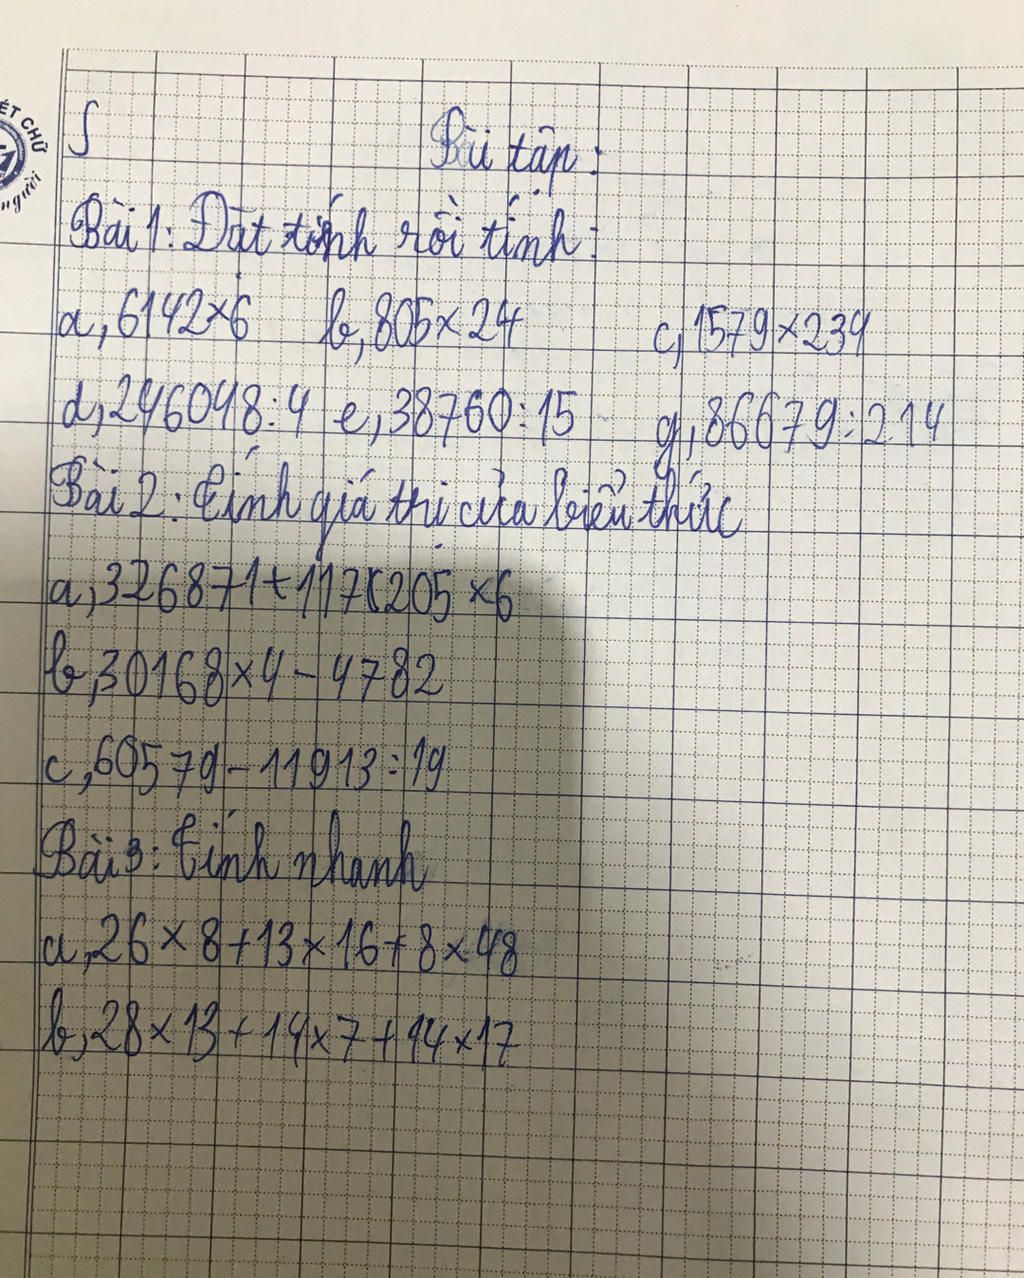 ẾT CHỮ
người
Bài tập:
Bài 1: Đặt tính rồi tính:
a, 6142×6 b, 805×24 c, 1579×234
d, 246048:4 e, 38760:15 g, 86679:214
Bài 2: tính giá thị của biểu thức
a, 326871+117(205×6
b, 30168×4-4782
c, 60579-11913:19
Bài 3: tính nhanh
a, 26×8+13×16+8×48
b, 28×13+14×7+14×17